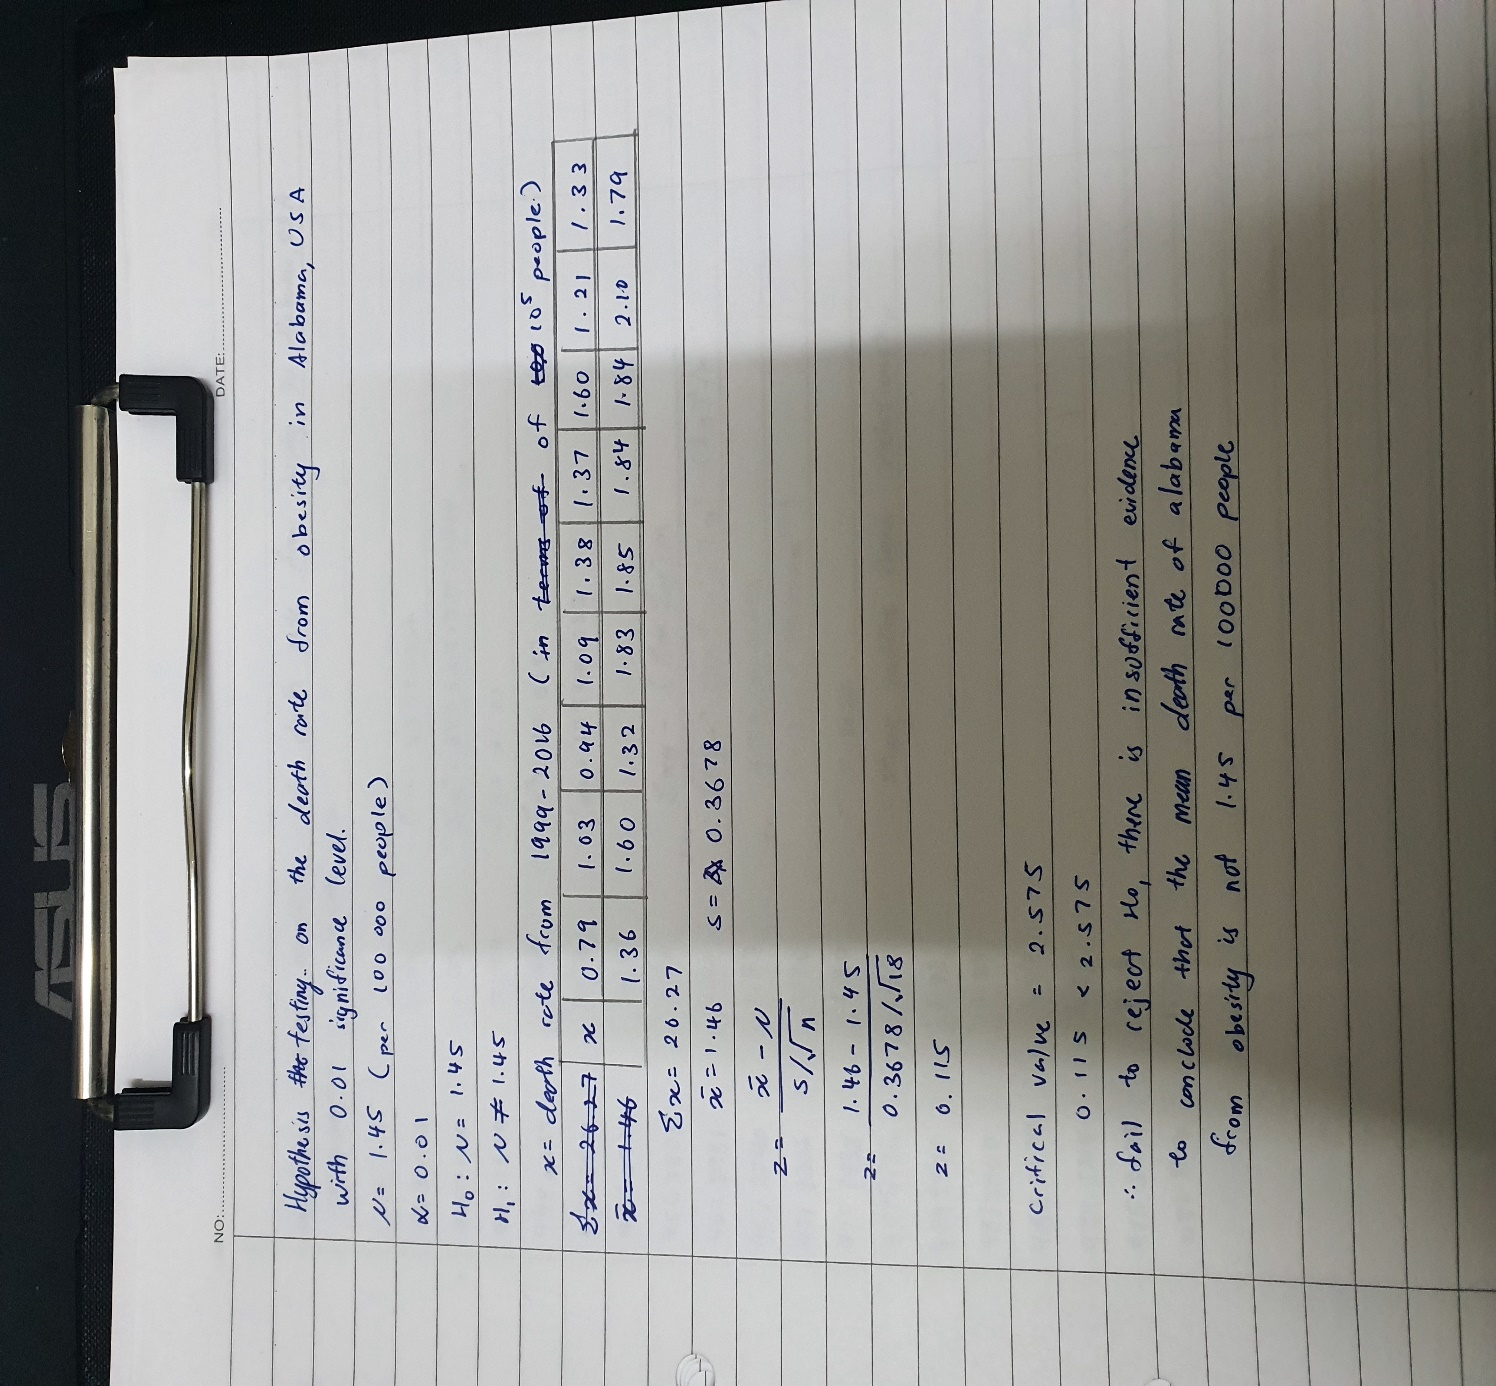 ASUS
NO: DATE:
Hypothesis the testing on the death rate from obesity in Alabama, USA
with 0.01 significance level.
μ = 1.45 (per 100 000 people)
α = 0.01
H₀ : μ = 1.45
H₁ : μ ≠ 1.45
x = death rate from 1999 - 2016 (in terms of of 100 10⁵ people.)
Σx = 26.27 x 0.79 1.03 0.94 1.09 1.38 1.37 1.60 1.21 1.33
x̄ = 1.46 1.36 1.60 1.32 1.83 1.85 1.84 1.84 2.10 1.79
Σx = 26.27
x̄ = 1.46 s = 0.3678
z = x̄ - μ / s/√n
z = 1.46 - 1.45 / 0.3678/√18
z = 0.115
critical value = 2.575
0.115 < 2.575
∴ fail to reject H₀, there is insufficient evidence
to conclude that the mean death rate of alabama
from obesity is not 1.45 per 100000 people